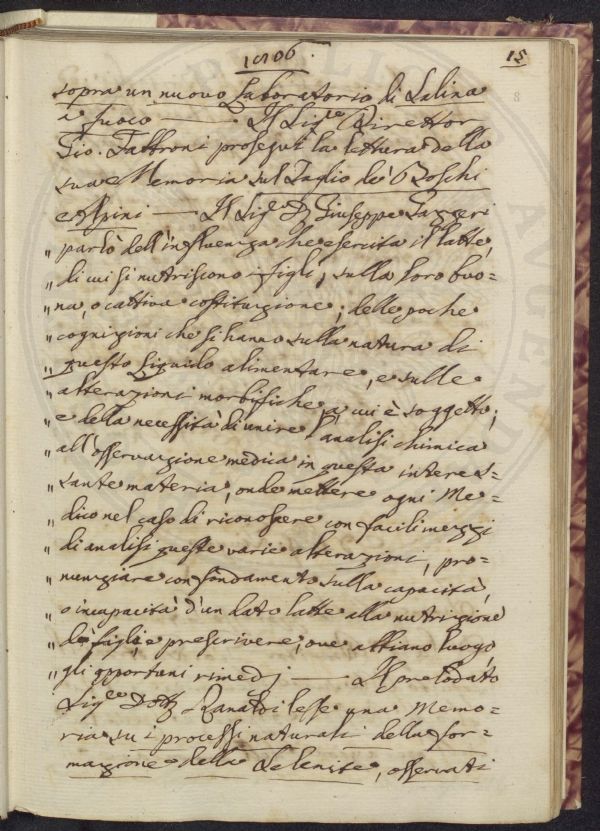 1806.
15
8
sopra un nuovo Laboratorio di Salina
a fuoco ——— Il Sig.re Direttor
Gio. Fabbroni proseguì la lettura della
sua Memoria sul Taglio de' Boschi
Alpini —— Il Sig.e D. Giuseppe Gazzeri
„ parlò dell'influenza che esercita il latte,
„ di cui si nutriscono i figli, sulla loro buo=
„ na, o cattiva costituzione; delle poche
„ cognizioni che si hanno sulla natura di
„ questo Liquido alimentare, e sulle
„ alterazioni morbifiche a cui è soggetto;
„ e della necessità di unire l'analisi chimica
„ all'osservazione medica in questa interes=
„ sante materia, onde mettere ogni Me=
„ dico nel caso di riconoscere con facili mezzi
„ di analisi queste varie alterazioni, pro=
„ nunziare con fondamento sulla capacità,
„ o incapacità d'un dato latte alla nutrizione
„ de' figli, e prescrivere, ove abbiano luogo
„ gli opportuni rimedj —— Il prelodato
Sig.e Dott. lesse una Memo=
ria su i processi naturali della for=
mazione della Selenite, osservati